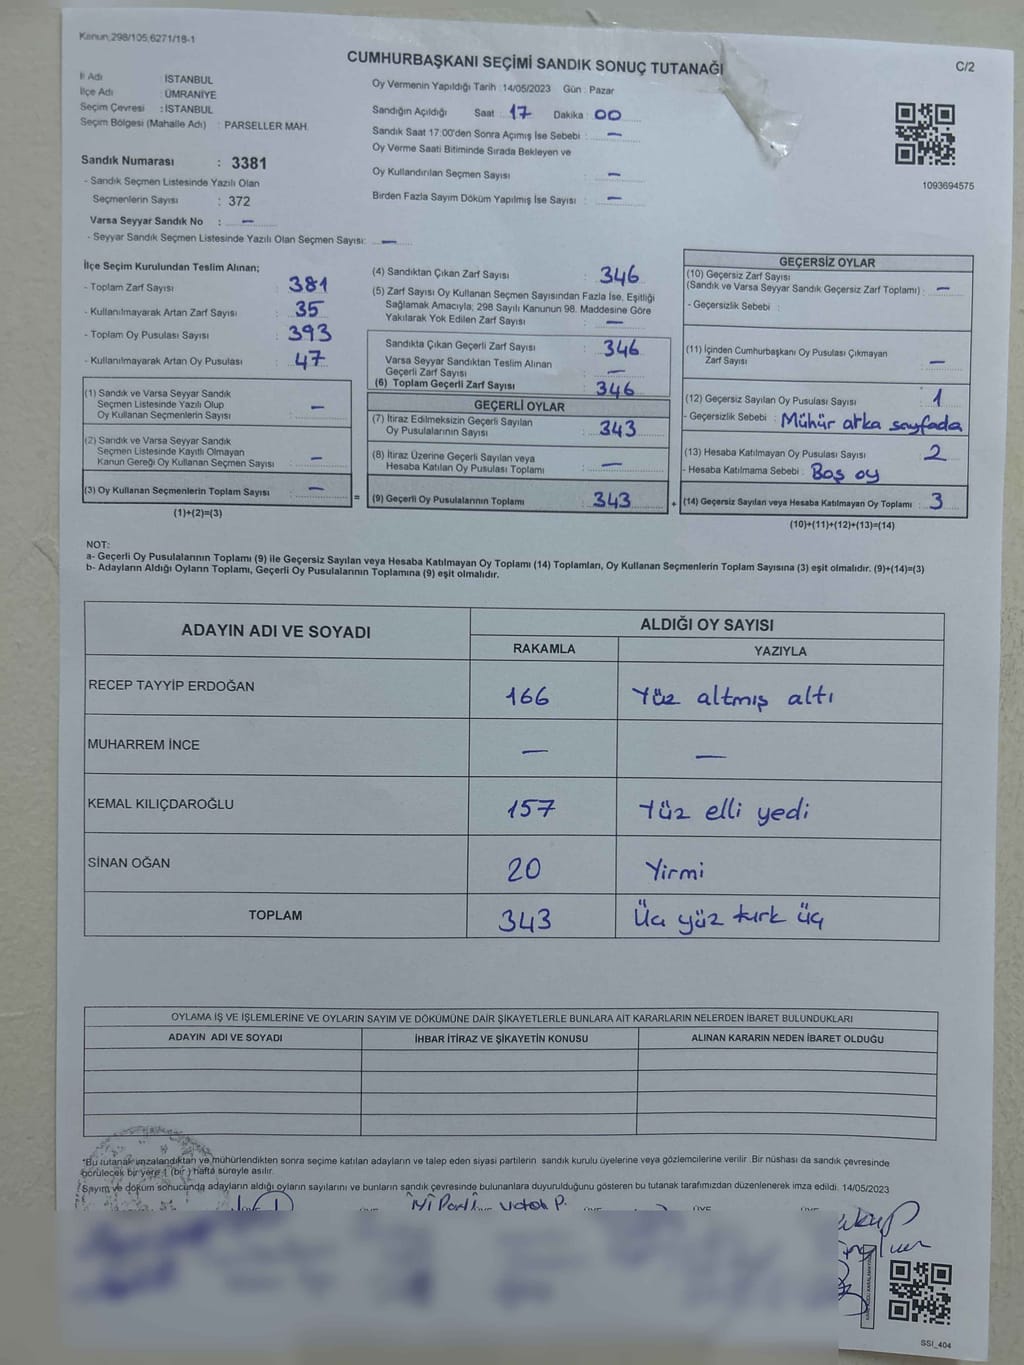 Kanun:298/105,6271/18-1
CUMHURBAŞKANI SEÇİMİ SANDIK SONUÇ TUTANAĞI
C/2
İl Adı : İSTANBUL
İlçe Adı : ÜMRANİYE
Seçim Çevresi : İSTANBUL
Seçim Bölgesi (Mahalle Adı) : PARSELLER MAH.
Oy Vermenin Yapıldığı Tarih : 14/05/2023 Gün : Pazar
Sandığın Açıldığı Saat : 17 Dakika : 00
Sandık Saat 17:00'den Sonra Açımış İse Sebebi : —
Oy Verme Saati Bitiminde Sırada Bekleyen ve
Oy Kullandırılan Seçmen Sayısı : —
Birden Fazla Sayım Döküm Yapılmış İse Sayısı : —
1093694575
Sandık Numarası : 3381
- Sandık Seçmen Listesinde Yazılı Olan
Seçmenlerin Sayısı : 372
Varsa Seyyar Sandık No : —
- Seyyar Sandık Seçmen Listesinde Yazılı Olan Seçmen Sayısı: —
İlçe Seçim Kurulundan Teslim Alınan;
- Toplam Zarf Sayısı : 381
- Kullanılmayarak Artan Zarf Sayısı : 35
- Toplam Oy Pusulası Sayısı : 393
- Kullanılmayarak Artan Oy Pusulası : 47
(1) Sandık ve Varsa Seyyar Sandık
Seçmen Listesinde Yazılı Olup
Oy Kullanan Seçmenlerin Sayısı : —
(2) Sandık ve Varsa Seyyar Sandık
Seçmen Listesinde Kayıtlı Olmayan
Kanun Gereği Oy Kullanan Seçmen Sayısı : —
(3) Oy Kullanan Seçmenlerin Toplam Sayısı : —
(1)+(2)=(3)
(4) Sandıktan Çıkan Zarf Sayısı : 346
(5) Zarf Sayısı Oy Kullanan Seçmen Sayısından Fazla İse, Eşitliği
Sağlamak Amacıyla; 298 Sayılı Kanunun 98. Maddesine Göre
Yakılarak Yok Edilen Zarf Sayısı : —
Sandıkta Çıkan Geçerli Zarf Sayısı : 346
Varsa Seyyar Sandıktan Teslim Alınan
Geçerli Zarf Sayısı : —
(6) Toplam Geçerli Zarf Sayısı : 346
GEÇERLİ OYLAR
(7) İtiraz Edilmeksizin Geçerli Sayılan
Oy Pusulalarının Sayısı : 343
(8) İtiraz Üzerine Geçerli Sayılan veya
Hesaba Katılan Oy Pusulası Toplamı : —
= (9) Geçerli Oy Pusulalarının Toplamı : 343 +
GEÇERSİZ OYLAR
(10) Geçersiz Zarf Sayısı
(Sandık ve Varsa Seyyar Sandık Geçersiz Zarf Toplamı) : —
- Geçersizlik Sebebi :
(11) İçinden Cumhurbaşkanı Oy Pusulası Çıkmayan
Zarf Sayısı : —
(12) Geçersiz Sayılan Oy Pusulası Sayısı : 1
- Geçersizlik Sebebi : Mühür arka sayfada
(13) Hesaba Katılmayan Oy Pusulası Sayısı : 2
- Hesaba Katılmama Sebebi : Boş oy
(14) Geçersiz Sayılan veya Hesaba Katılmayan Oy Toplamı : 3
(10)+(11)+(12)+(13)=(14)
NOT:
a- Geçerli Oy Pusulalarının Toplamı (9) ile Geçersiz Sayılan veya Hesaba Katılmayan Oy Toplamı (14) Toplamları, Oy Kullanan Seçmenlerin Toplam Sayısına (3) eşit olmalıdır. (9)+(14)=(3)
b- Adayların Aldığı Oyların Toplamı, Geçerli Oy Pusulalarının Toplamına (9) eşit olmalıdır.
ADAYIN ADI VE SOYADI
ALDIĞI OY SAYISI
RAKAMLA YAZIYLA
RECEP TAYYİP ERDOĞAN 166 Yüz altmış altı
MUHARREM İNCE — —
KEMAL KILIÇDAROĞLU 157 Yüz elli yedi
SİNAN OĞAN 20 Yirmi
TOPLAM 343 Üç yüz kırk üç
OYLAMA İŞ VE İŞLEMLERİNE VE OYLARIN SAYIM VE DÖKÜMÜNE DAİR ŞİKAYETLERLE BUNLARA AİT KARARLARIN NELERDEN İBARET BULUNDUKLARI
ADAYIN ADI VE SOYADI İHBAR İTİRAZ VE ŞİKAYETİN KONUSU ALINAN KARARIN NEDEN İBARET OLDUĞU
*Bu tutanak imzalandıktan ve mühürlendikten sonra seçime katılan adayların ve talep eden siyasi partilerin sandık kurulu üyelerine veya gözlemcilerine verilir .Bir nüshası da sandık çevresinde
görülecek bir yere 1 (bir ) hafta süreyle asılır.
*Sayım ve döküm sonucunda adayların aldığı oyların sayılarını ve bunların sandık çevresinde bulunanlara duyurulduğunu gösteren bu tutanak tarafımızdan düzenlenerek imza edildi. 14/05/2023
İYİ Parti Vatan P.
ÜYE ÜYE ÜYE ÜYE
SSI_404